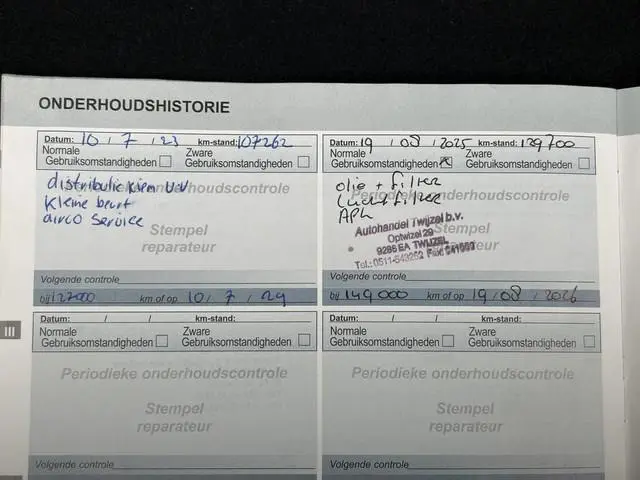 ONDERHOUDSHISTORIE
Datum: 10 / 7 / 23 km-stand: 107262
Normale Gebruiksomstandigheden
Zware Gebruiksomstandigheden
Periodieke onderhoudscontrole
distributieriem
kleine beurt
airco service
Stempel
reparateur
Volgende controle
bij 127000 km of op 10 / 7 / 24
Datum: 19 / 08 / 2025 km-stand: 129700
Normale Gebruiksomstandigheden
Zware Gebruiksomstandigheden
Periodieke onderhoudscontrole
olie + filter
luchtfilter
APK
Stempel
reparateur
Autohandel Twijzel b.v.
Optwizel 29
9286 EA TWIJZEL
Tel.: 0511-543252 Fax:
Volgende controle
bij 149000 km of op 19 / 08 / 2026
III
Datum: / / km-stand:
Normale Gebruiksomstandigheden
Zware Gebruiksomstandigheden
Periodieke onderhoudscontrole
Stempel
reparateur
Volgende controle
Datum: / / km-stand:
Normale Gebruiksomstandigheden
Zware Gebruiksomstandigheden
Periodieke onderhoudscontrole
Stempel
reparateur
Volgende controle